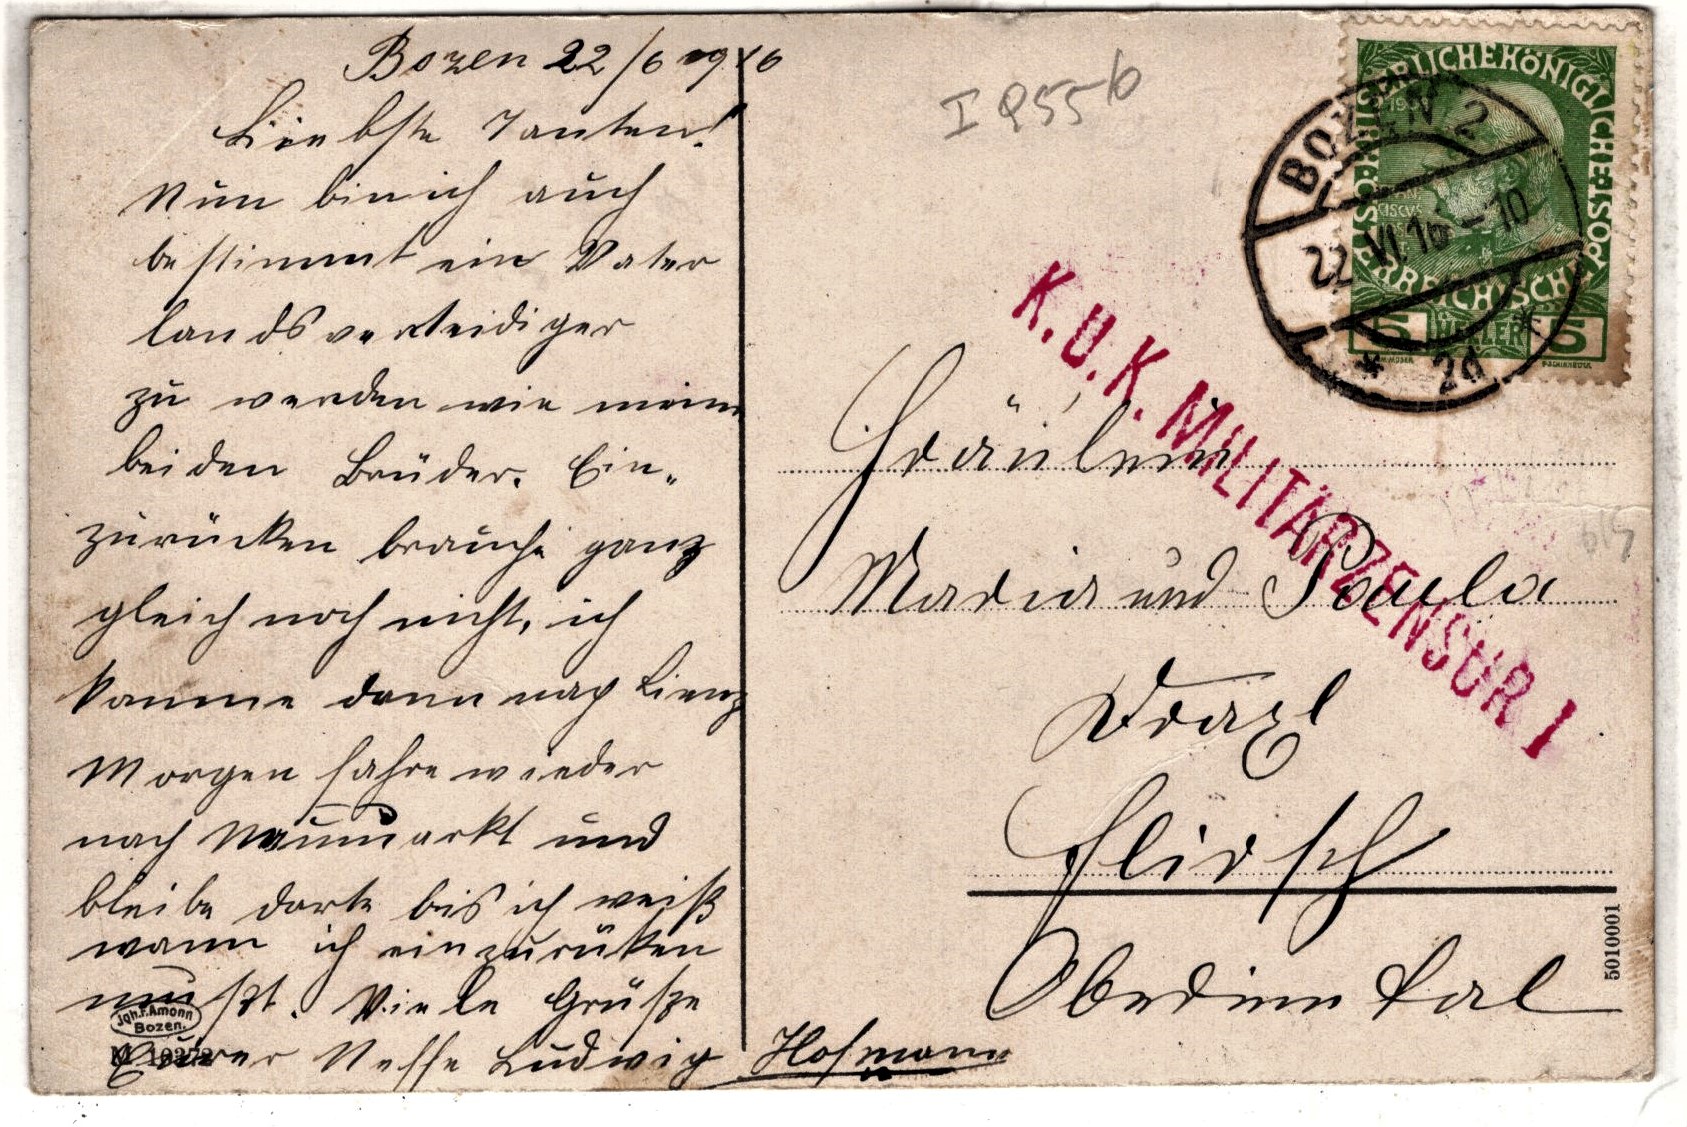 Bozen 22/6 1916
Liebste Tanten!
Nun bin ich auch
bestimmt ein Vater
landsverteidiger
zu werden wie meine
beiden Brüder. Ein-
zurücken brauche ganz
gleich noch nicht, ich
komme dann nach Lienz
Morgen fahre wieder
nach Neumarkt und
bleibe dort bis ich weiß
wann ich einzurüken
mußt. Viele Grüße
Euer Neffe Ludwig Hofmann
Joh. F. Amonn
Bozen.
5010001
I 955 b
BOZEN 2
22 VI 16 - 10
* 2d *
KAISERLICHE KÖNIGLICHE ÖSTERREICHISCHE POST
5 HELLER 5
K.U.K. MILITÄRZENSUR I
Fräulein
Maria und Paula
Draxl
Flirsch
Oberinntal